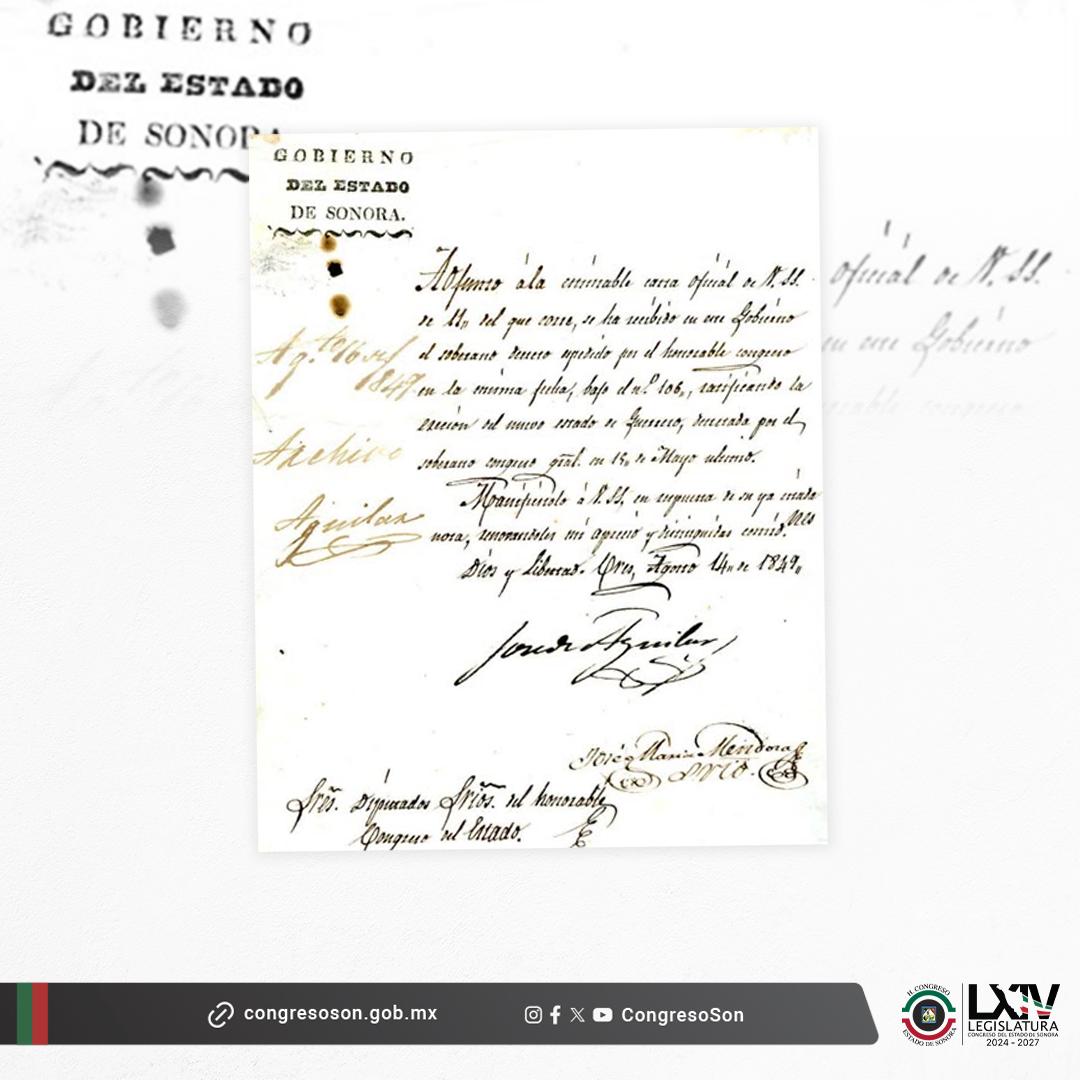 GOBIERNO
DEL ESTADO
DE SONORA
GOBIERNO
DEL ESTADO
DE SONORA.
Adjunto á la estimable carta oficial de V. SS.
de 11,, del que corre, se ha recibido en este Gobierno
el soberano decreto expedido por el honorable congreso
en la misma fecha, bajo el n.º 106,, ratificando la
erección del nuevo estado de Guerrero, decretada por el
soberano congreso gral. en 15,, de Mayo ultimo.
Manifiéstolo á V. SS, en respuesta de su ya citada
nota, renovandoles mi aprecio y distinguidas consid.nes
Dios y Libertad. Ures, Agosto 14,, de 1849,,
Ag.to 16 de
1849
Archivo
Aguilar
José de Aguilar
José Maria Mendoza
Srio.
Sres. Diputados Srios. del honorable
Congreso del Estado.
oficial de V. SS.
en este Gobierno
congreso
congresoson.gob.mx
CongresoSon
H. CONGRESO
ESTADO DE SONORA
LXIV
LEGISLATURA
CONGRESO DEL ESTADO DE SONORA
2024 - 2027